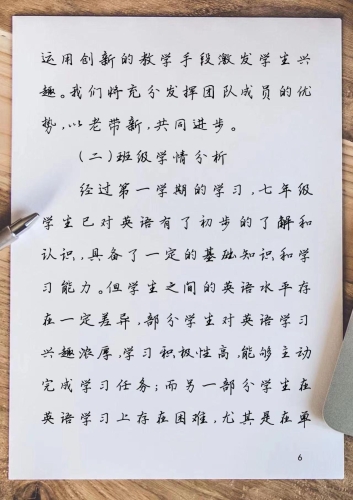 运用创新的教学手段激发学生兴
趣。我们将充分发挥团队成员的优
势,以老带新,共同进步。
(二)班级学情分析
经过第一学期的学习,七年级
学生已对英语有了初步的了解和
认识,具备了一定的基础知识和学
习能力。但学生之间的英语水平存
在一定差异,部分学生对英语学习
兴趣浓厚,学习积极性高,能够主动
完成学习任务;而另一部分学生在
英语学习上存在困难,尤其是在单
6